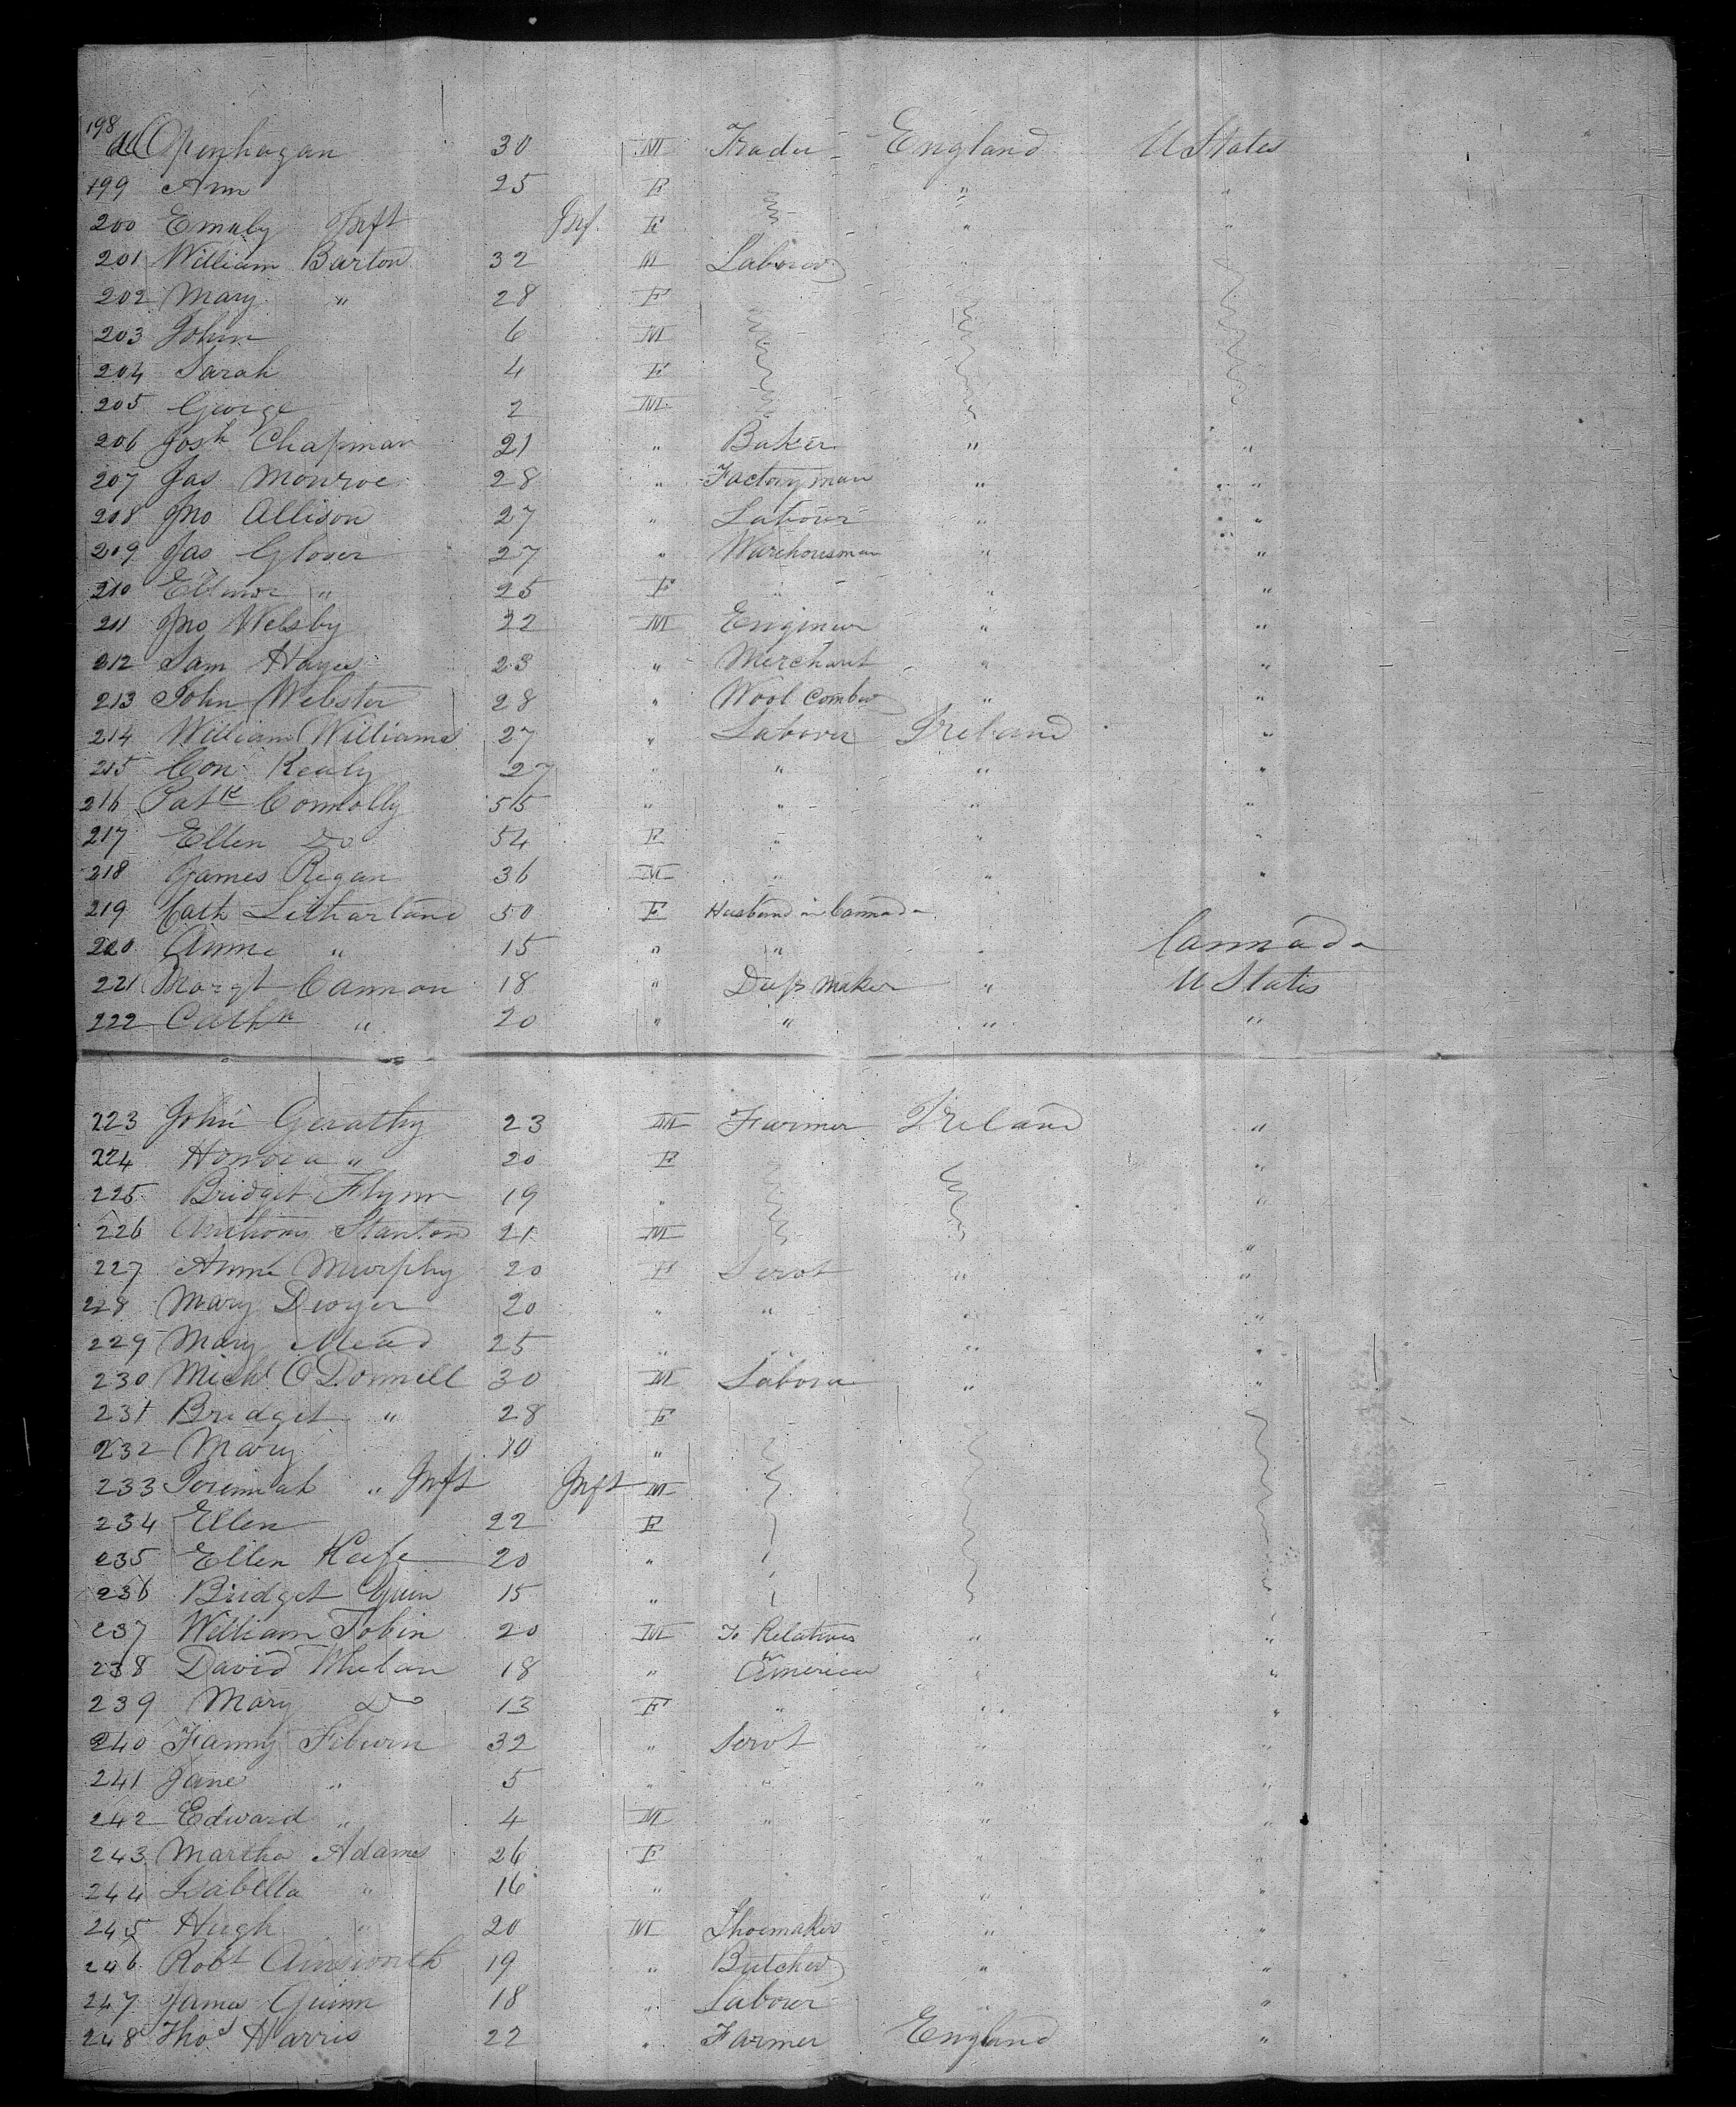 198 Openhagan 30 M Trader England U States
199 Ann 25 F " "
200 Emaly Inft Inf. F " "
201 William Barton 32 M Labourer
202 Mary " 28 F
203 John 6 M
204 Sarah 4 F
205 George 2 M
206 Josh Chapman 21 " Baker " "
207 Jas Monroe 28 " Factory man " "
208 Jno Allison 27 " Labour " "
209 Jas Glover 27 " Warehousman " "
210 Ellinor " 25 F " " "
211 Jno Welsby 22 M Engineer " "
212 Sam Hayes 23 " Merchant " "
213 John Webster 28 " Wool Comber " "
214 William Williams 27 " Labourer Ireland "
215 Con Kealy 27 " " " "
216 Patk Connolly 55 " " " "
217 Ellen Do 54 F " " "
218 James Regan 36 M " " "
219 Cath Litharland 50 F Husband in Cannada
220 Anne " 15 " " " Cannada
221 Margt Cannon 18 " Dress Maker " U States
222 Cathn " 20 " " " "
223 John Gerathy 23 M Farmer Ireland "
224 Honora " 20 F "
225 Bridget Flynn 19 " "
226 Anthony Stanton 21 M "
227 Anne Murphy 20 F Servt " "
228 Mary Dwyer 20 " " " "
229 Mary Mead 25 " " " "
230 Michl O Donnell 30 M Labour " "
231 Bridget " 28 F
232 Mary 10 "
233 Jeremiah " Inft Inft M
234 Ellen 22 F
235 Ellen Keefe 20 "
236 Bridget Guin 15 "
237 William Tobin 20 M To Relatives " "
238 David Whelan 18 " in America " "
239 Mary Do 13 F " " "
240 Fanny 32 " Servt " "
241 Jane " 5 " " " "
242 Edward " 4 M " " "
243 Martha Adams 26 F " "
244 Isabella " 16 " " "
245 Hugh " 20 M Shoemaker " "
246 Robt Ainsworth 19 " Butcher " "
247 James Quinn 18 " Labour " "
248 Thos Harris 22 " Farmer England "